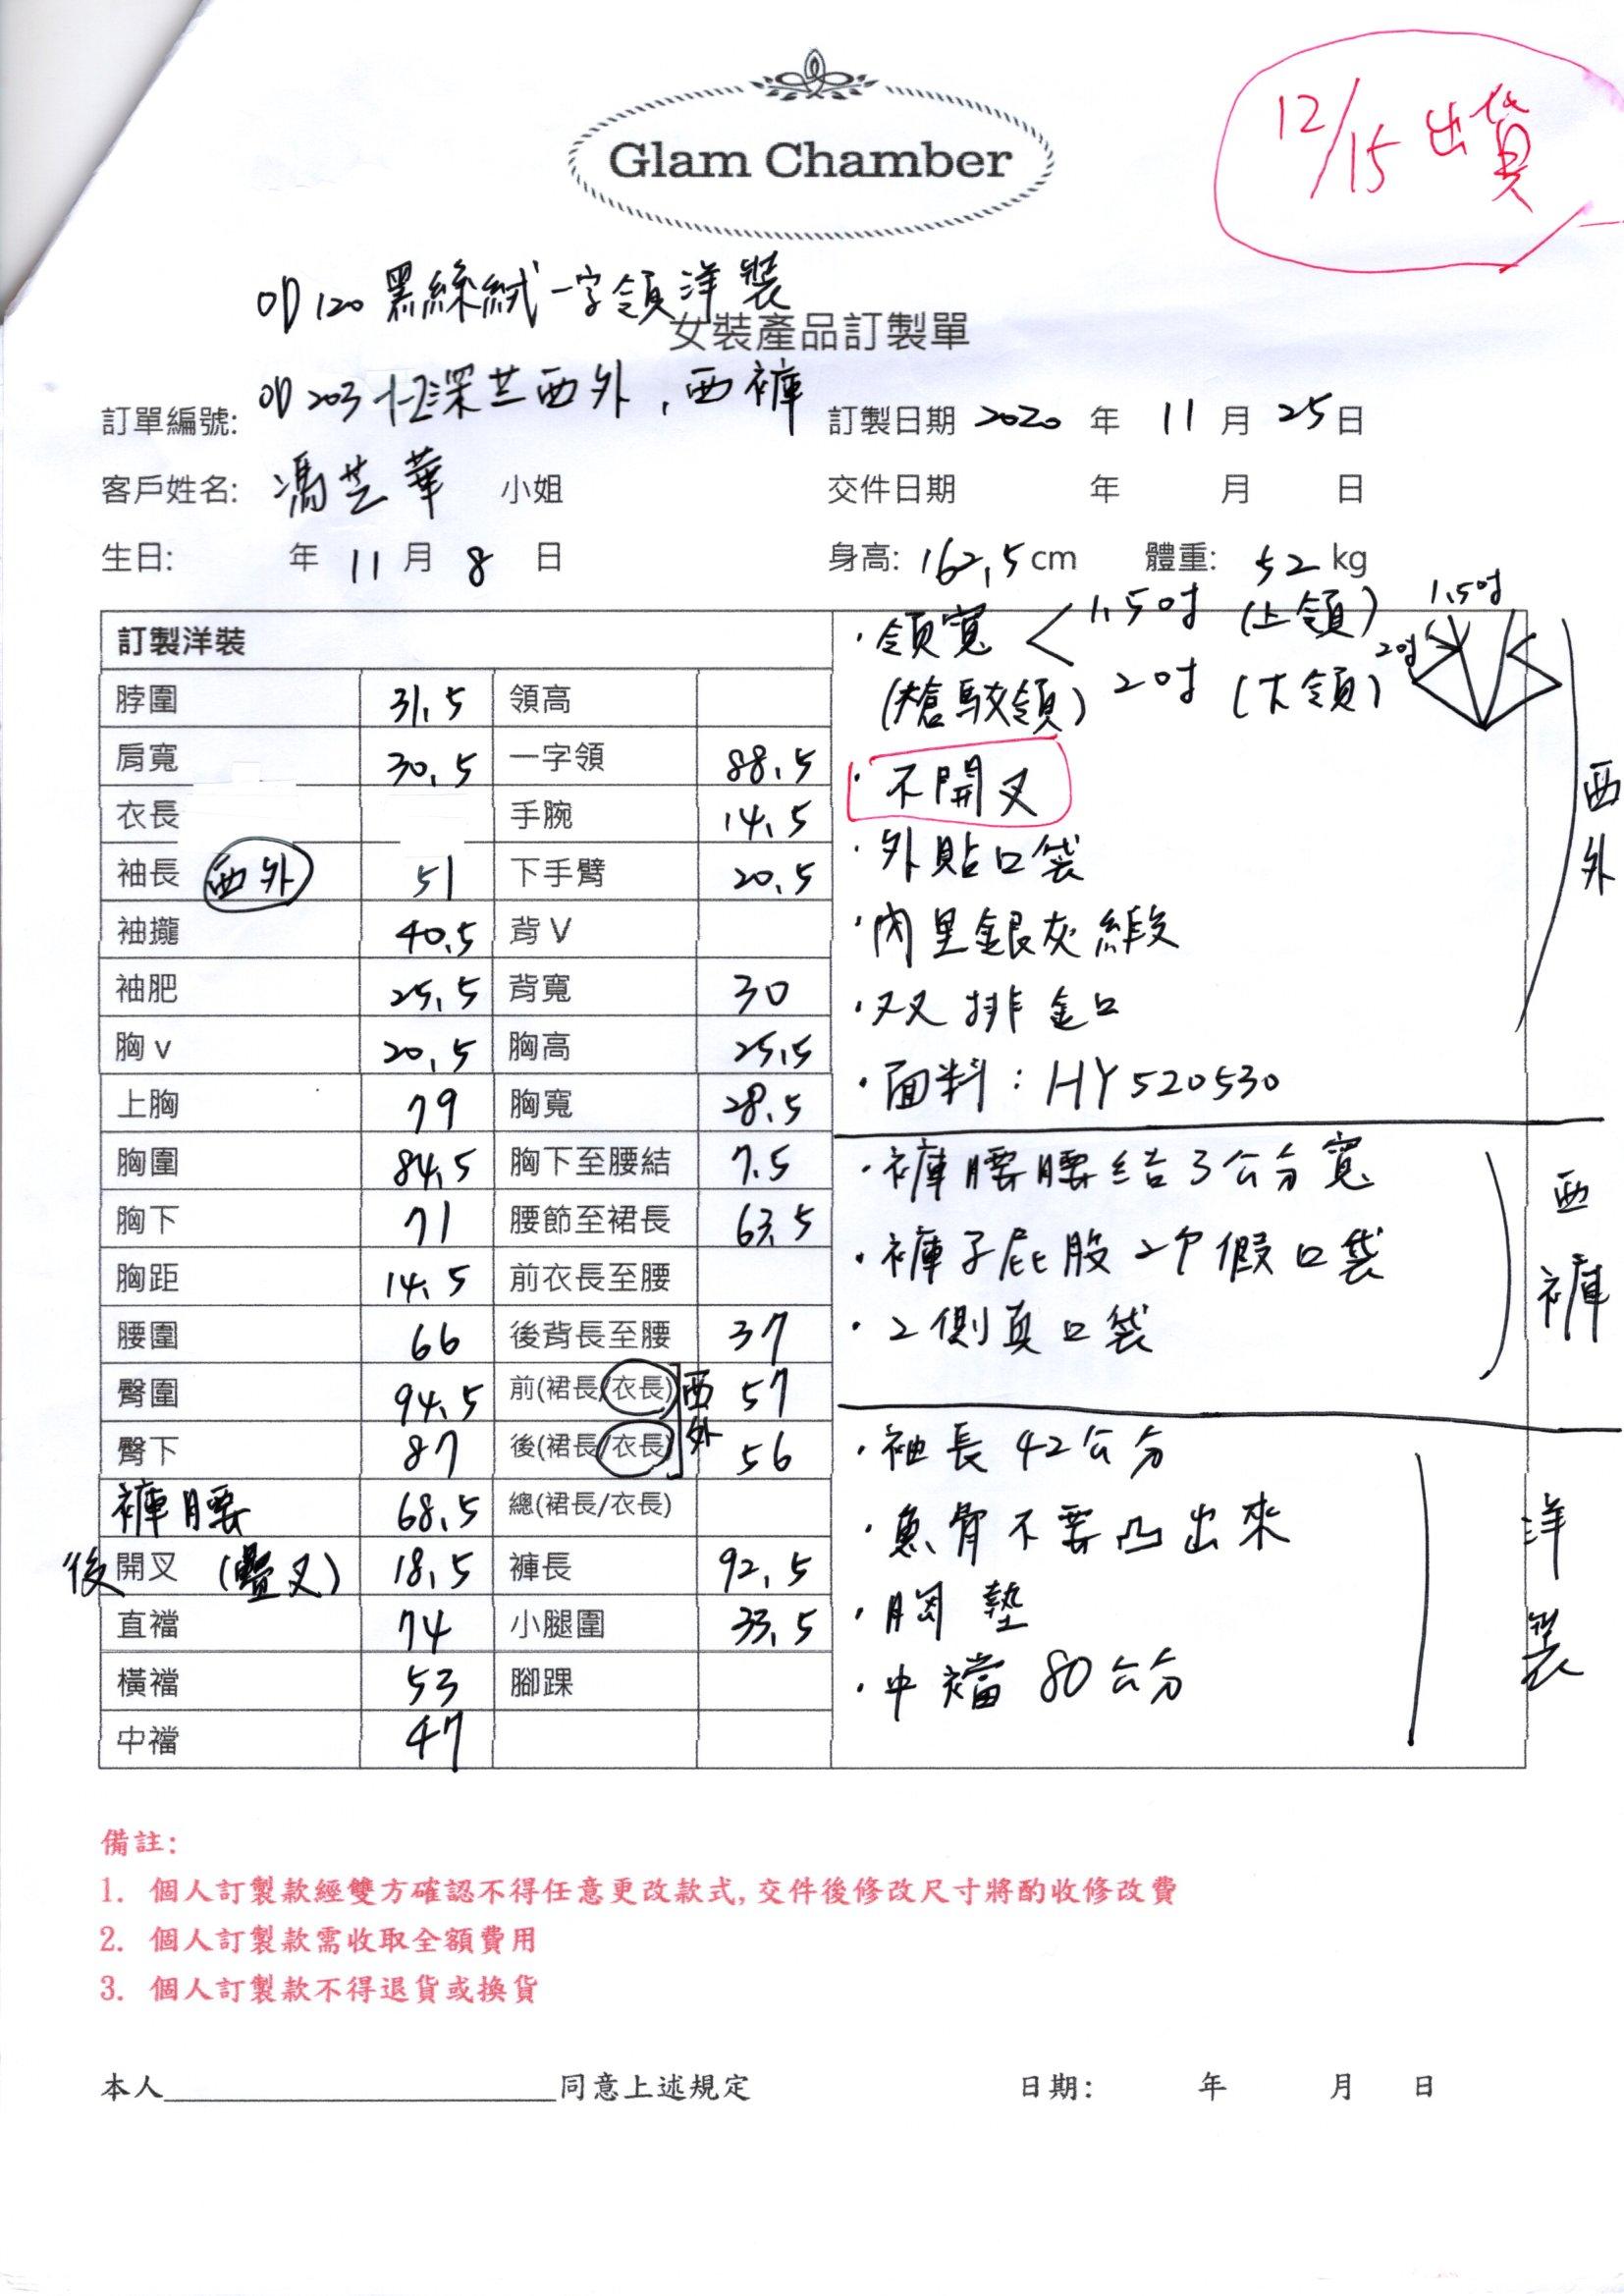 Glam Chamber
12/15 出貨
OD 120 黑絲絨一字領洋裝
女裝產品訂製單
OD 203 深芷西外,西褲
訂單編號: 訂製日期 2020 年 11 月 25 日
客戶姓名: 馮芷華 小姐 交件日期 年 月 日
生日: 年 11 月 8 日 身高: 162.5 cm 體重: 52 kg
訂製洋裝
脖圍 31.5 領高
肩寬 30.5 一字領 88.5
衣長 手腕 14.5
袖長 西外 51 下手臂 20.5
袖攏 40.5 背 V
袖肥 25.5 背寬 30
胸 v 20.5 胸高 25.5
上胸 79 胸寬 28.5
胸圍 84.5 胸下至腰結 7.5
胸下 71 腰節至裙長 63.5
胸距 14.5 前衣長至腰
腰圍 66 後背長至腰 37
臀圍 94.5 前(裙長/衣長) 西外 57
臀下 87 後(裙長/衣長) 56
褲腰 68.5 總(裙長/衣長)
後開叉 (疊叉) 18.5 褲長 92.5
直襠 74 小腿圍 33.5
橫襠 53 腳踝
中襠 47
·領寬 < 1.5吋 (上領)
(槍駁領) 2吋 (下領)
1.5吋
2吋
·不開叉
·外貼口袋
·內里銀灰緞
·双排釦
·面料:HY520530
西外
·褲腰腰结3公分寬
·褲子屁股2个假口袋
·2側真口袋
西褲
·袖長42公分
·魚骨不要凸出來
·胸墊
·中襠 80公分
洋裝
備註:
1. 個人訂製款經雙方確認不得任意更改款式,交件後修改尺寸將酌收修改費
2. 個人訂製款需收取全額費用
3. 個人訂製款不得退貨或換貨
本人____________________同意上述規定 日期: 年 月 日